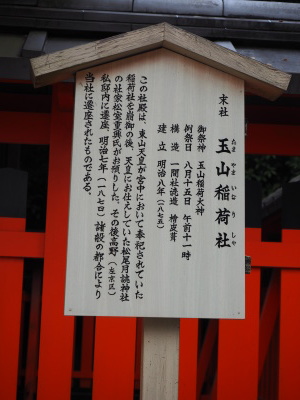 末社
玉山稲荷社
たまやまいなりしゃ
御祭神 玉山稲荷大神
例祭日 八月十五日 午前十一時
構造 一間社流造 檜皮葺
建立 明治八年(一八七五)
この社殿は、東山天皇が宮中において奉祀されていた
稲荷社を崩御の後、天皇にお仕えしていた松尾月読神社
の社家松室重興氏がお預りした。その後高野(左京区)
私邸内に遷座。明治七年(一八七〇)諸般の都合により
当社に遷座されたものである。